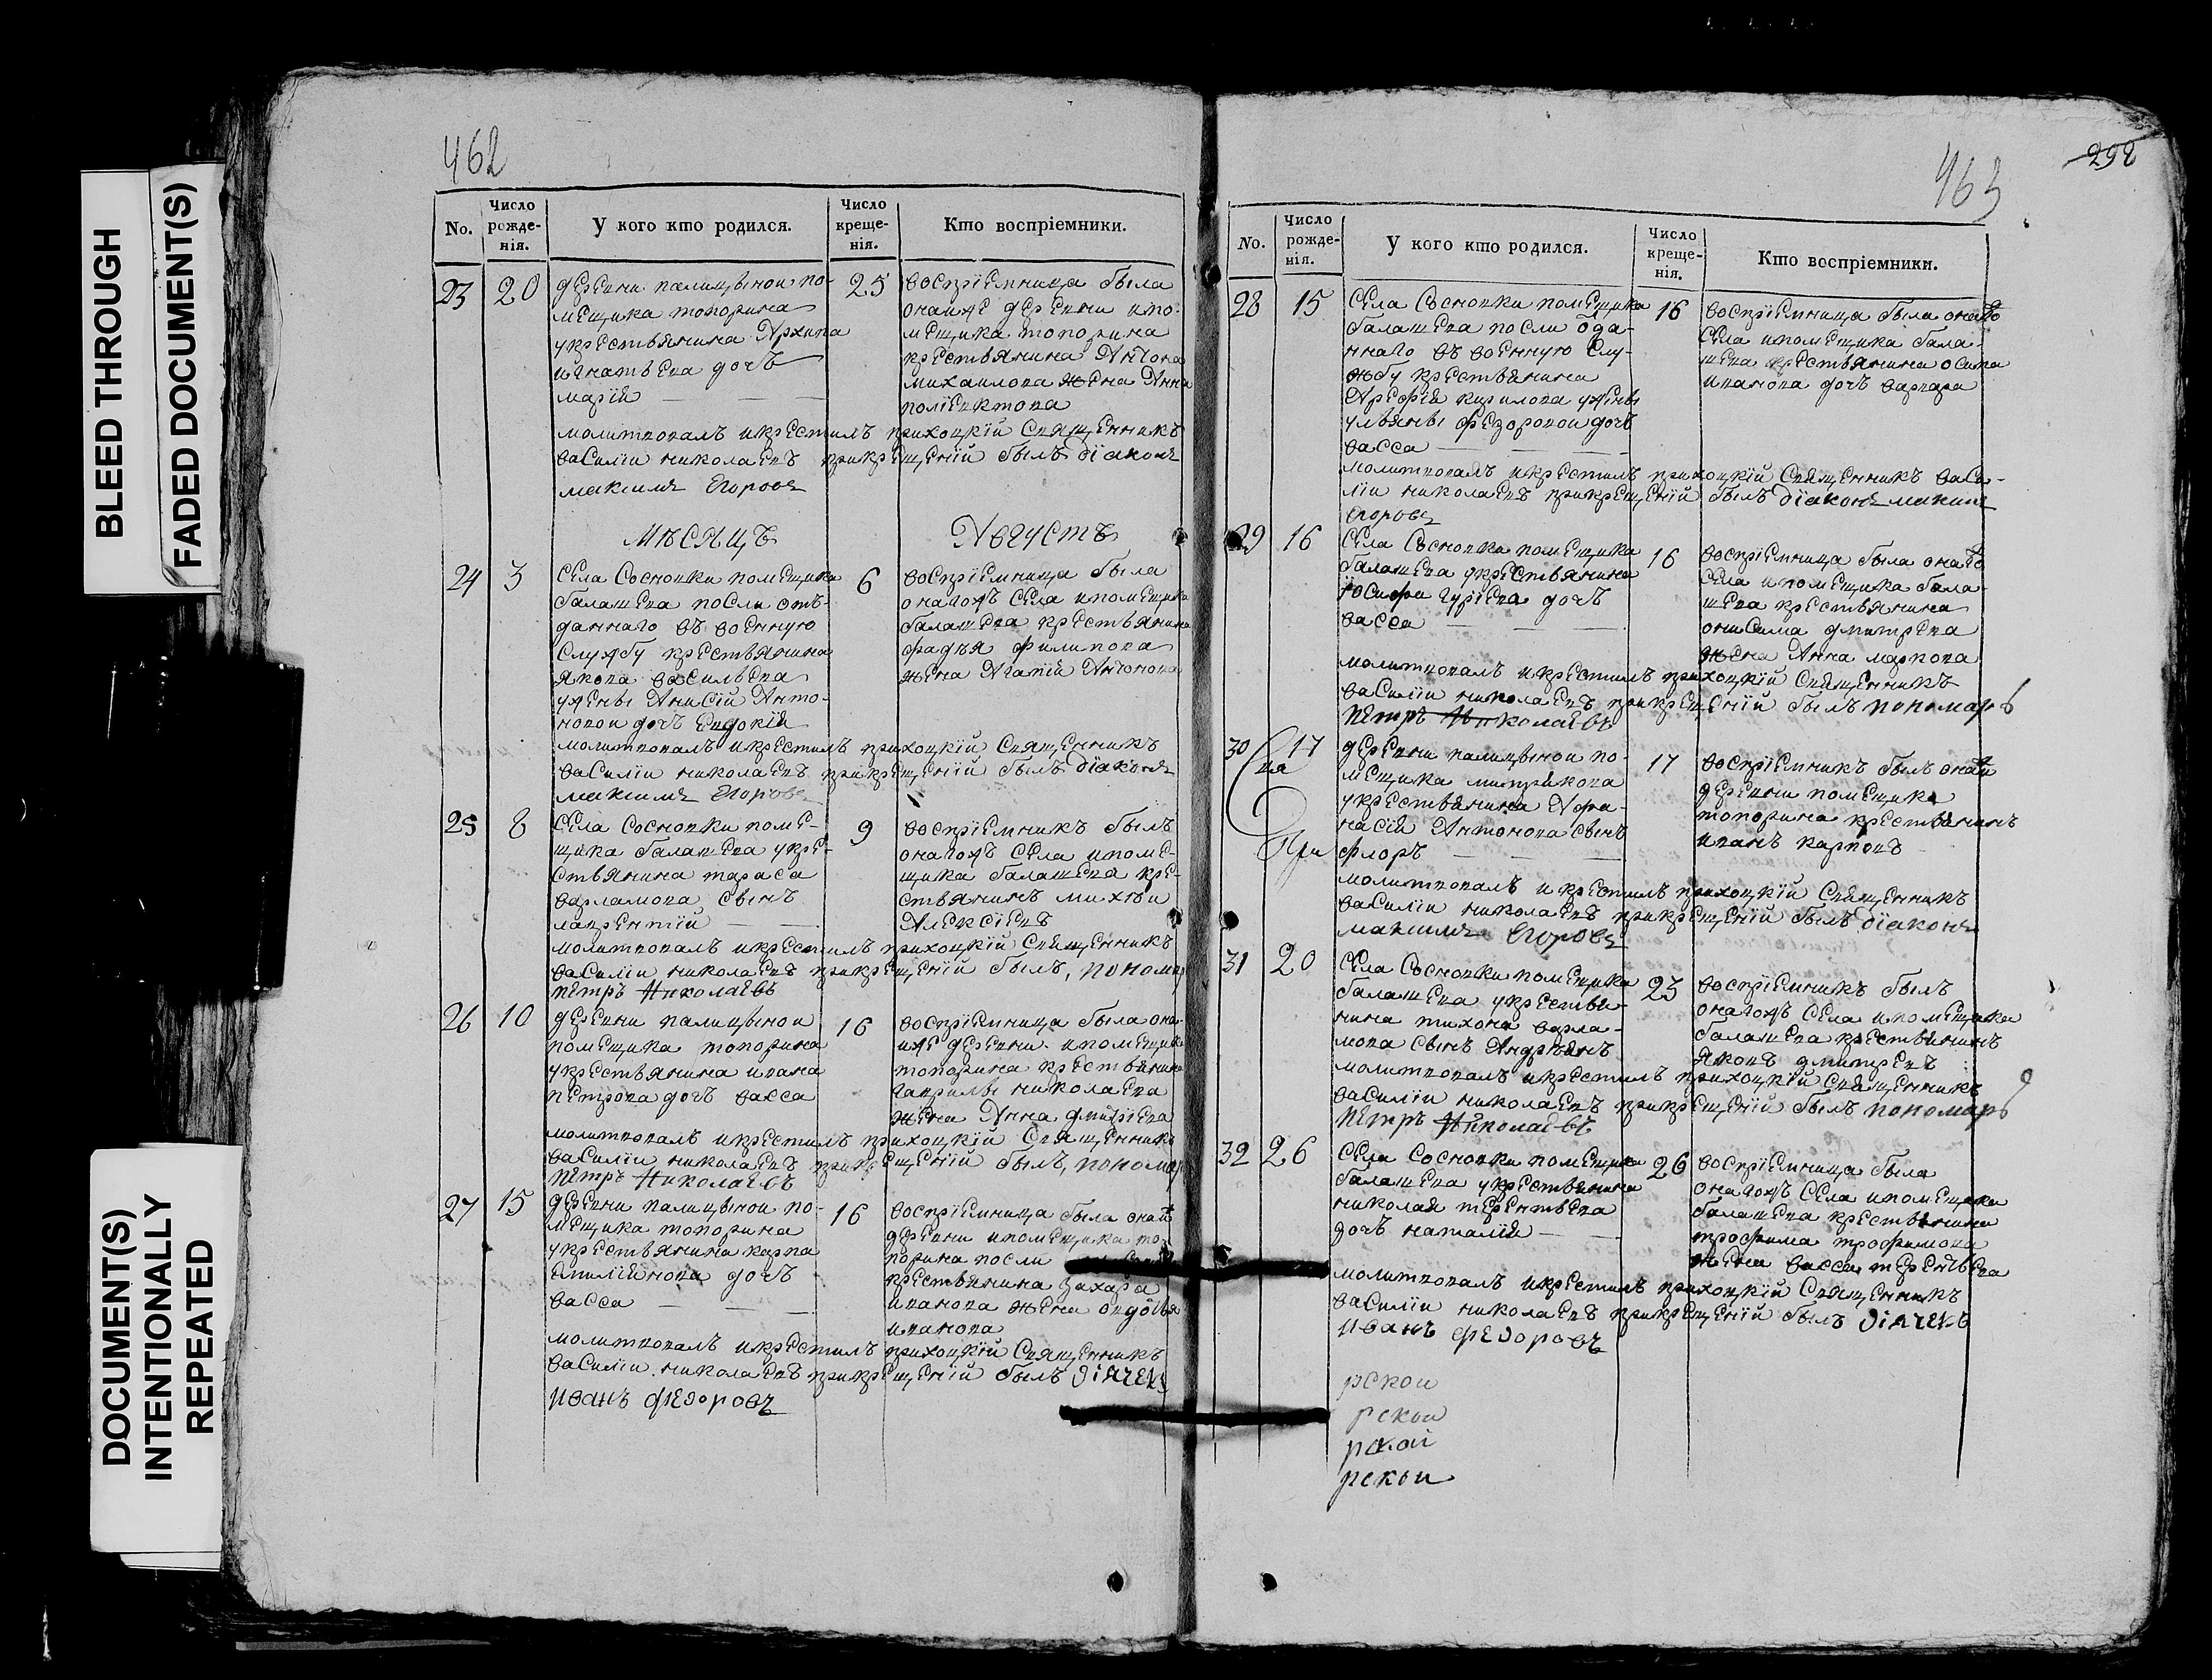 BLEED THROUGH
FADED DOCUMENT(S)
DOCUMENT(S)
INTENTIONALLY
REPEATED
462
No.
Число рожденія.
У кого кто родился.
Число крещенія.
Кто воспріемники.
23
20
деревни палицыной по-
мещика топорина
укрестьянина Архипа
игнатьева дочъ
марія
25
воспріемница была
онайже деревни ипо-
мещика топорина
крестьянина Антона
михаилова жена Анна
поліевктова
молитвовалъ икрестилъ прихоцкій Священникъ
василіи николаевъ прикрещеніи былъ діаконъ
максимъ Егоровъ
мѣсяцъ Августъ
24
3
Села Сосновки помещика
балашева посли отъ-
даннаго въ военную
Службу крестьянина
якова васильева
ужены Анисіи Анто-
новои дочъ Евдокія
6
воспріемница была
онагожъ Села ипомещика
балашева крестьянина
фадѣя филипова
жена Агапія Антонова
молитвовалъ икрестилъ прихоцкій Священникъ
василіи николаевъ прикрещеніи былъ діаконъ
максимъ Егоровъ
25
8
Села Сосновки поме-
щика балашева укре-
стьянина тараса
варламова сынъ
лаврентій
9
воспріемникъ былъ
онагожъ Села ипоме-
щика балашева кре-
стьянинъ михѣи
Алексіевъ
молитвовалъ икрестилъ прихоцкій Священникъ
василіи николаевъ прикрещеніи былъ, пономарь
петръ Николаевъ
26
10
деревни палицыной
помещика топорина
укрестьянина ивана
петрова дочъ васса
16
воспріемница была она-
иже деревни ипомещика
топорина крестьянина
гаврилы николаева
жена Анна дмитріева
молитвовалъ икрестилъ прихоцкій Священникъ
василіи николаевъ прикрещеніи былъ, пономарь
петръ Николаевъ
27
15
деревни палицыной по-
мещика топорина
укрестьянина карпа
емиліянова дочъ
васса
16
воспріемница была онай
деревни ипомещика то-
порина посли
крестьянина захара
иванова жена овдотья
иванова
молитвовалъ икрестилъ прихоцкій Священникъ
василіи николаевъ прикрещеніи былъ діячекъ
иванъ федоровъ
463
298
No.
Число рожденія.
У кого кто родился.
Число крещенія.
Кто воспріемники.
28
15
Села Сосновки помещика
балашева посли ода-
ннаго въ военную Слу-
жбу крестьянина
Арефія кирилова ужены
ульяны федоровои дочъ
васса
16
воспріемница была онаго
Села ипомещика бала-
шева крестьянина осипа
иванова дочъ варвара
молитвовалъ икрестилъ прихоцкій Священникъ васи-
ліи николаевъ прикрещеніи былъ діаконъ максимъ
Егоровъ
29
16
Села Сосновки помещика
балашева укрестьянина
іосифа гуріева дочъ
васса
16
воспріемница была онаго
Села ипомещика бала-
шева крестьянина
онисима дмитрева
жена Анна маркова
молитвовалъ икрестилъ прихоцкій Священникъ
василіи николаевъ прикрещеніи былъ пономарь
петръ Николаевъ
30
17
деревни палицыной по-
мещика митрикова
укрестьянина Афа-
насія Антонова сынъ
флоръ
17
воспріемникъ былъ онай
деревни помещика
топорина крестьянинъ
иванъ карповъ
молитвовалъ икрестилъ прихоцкій Священникъ
василіи николаевъ прикрещеніи былъ діаконъ
максимъ Егоровъ
31
20
Села Сосновки помещика
балашева укрестья-
нина тихона варла-
мова сынъ Андреянъ
23
воспріемникъ былъ
онагожъ Села ипомещика
балашева крестьянинъ
яковъ дмитревъ
молитвовалъ икрестилъ прихоцкій Священникъ
василіи николаевъ прикрещеніи былъ пономарь
петръ Николаевъ
32
26
Села Сосновки помещика
балашева укрестьянина
николая терентьева
дочъ наталія
26
воспріемница была
онагожъ Села ипомещика
балашева крестьянина
трофима трофимова
жена васса терентьева
молитвовалъ икрестилъ прихоцкій Священникъ
василіи николаевъ прикрещеніи былъ діячекъ
иванъ федоровъ
рскои
рскои
рской
рскои